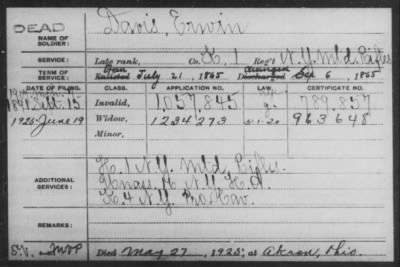 DEAD
NAME OF SOLDIER: Davis, Erwin
SERVICE: Late rank, Co. K, 1 Reg't N.Y. Mtd. Rifles
TERM OF SERVICE: Enlisted July 21, 1865 Discharged Sep 6, 1865
DATE OF FILING. CLASS. APPLICATION NO. LAW. CERTIFICATE NO.
1891 Sept. 15 Invalid, 1,057,845 789,857
1925 June 19 Widow, 1234273 963648
Minor,
ADDITIONAL SERVICES: K. 1 N.Y. Mtd. Rifles
N.Y. H.A.
K. 4 N.Y. Pro. Cav.
REMARKS:
Died May 27, 1925, at Akron, Ohio